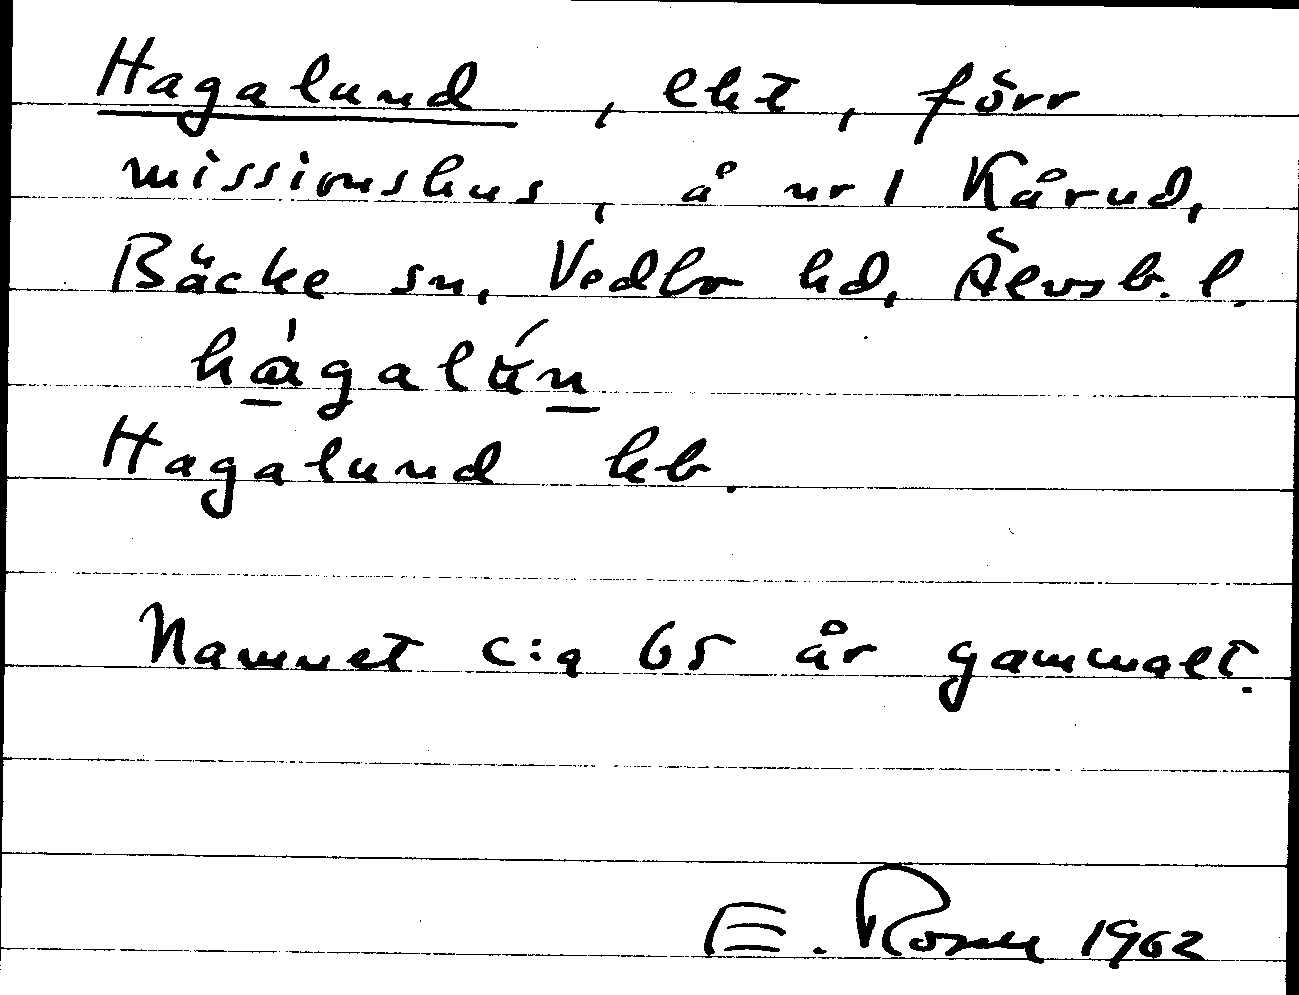 Hagalund, lht, förr
missionshus, å nr 1 Kårud,
Bäcke sn, Vedbo hd, Älvsb. l.
hàgalún
Hagalund kb.
Namnet c:a 65 år gammalt.
E. 1962